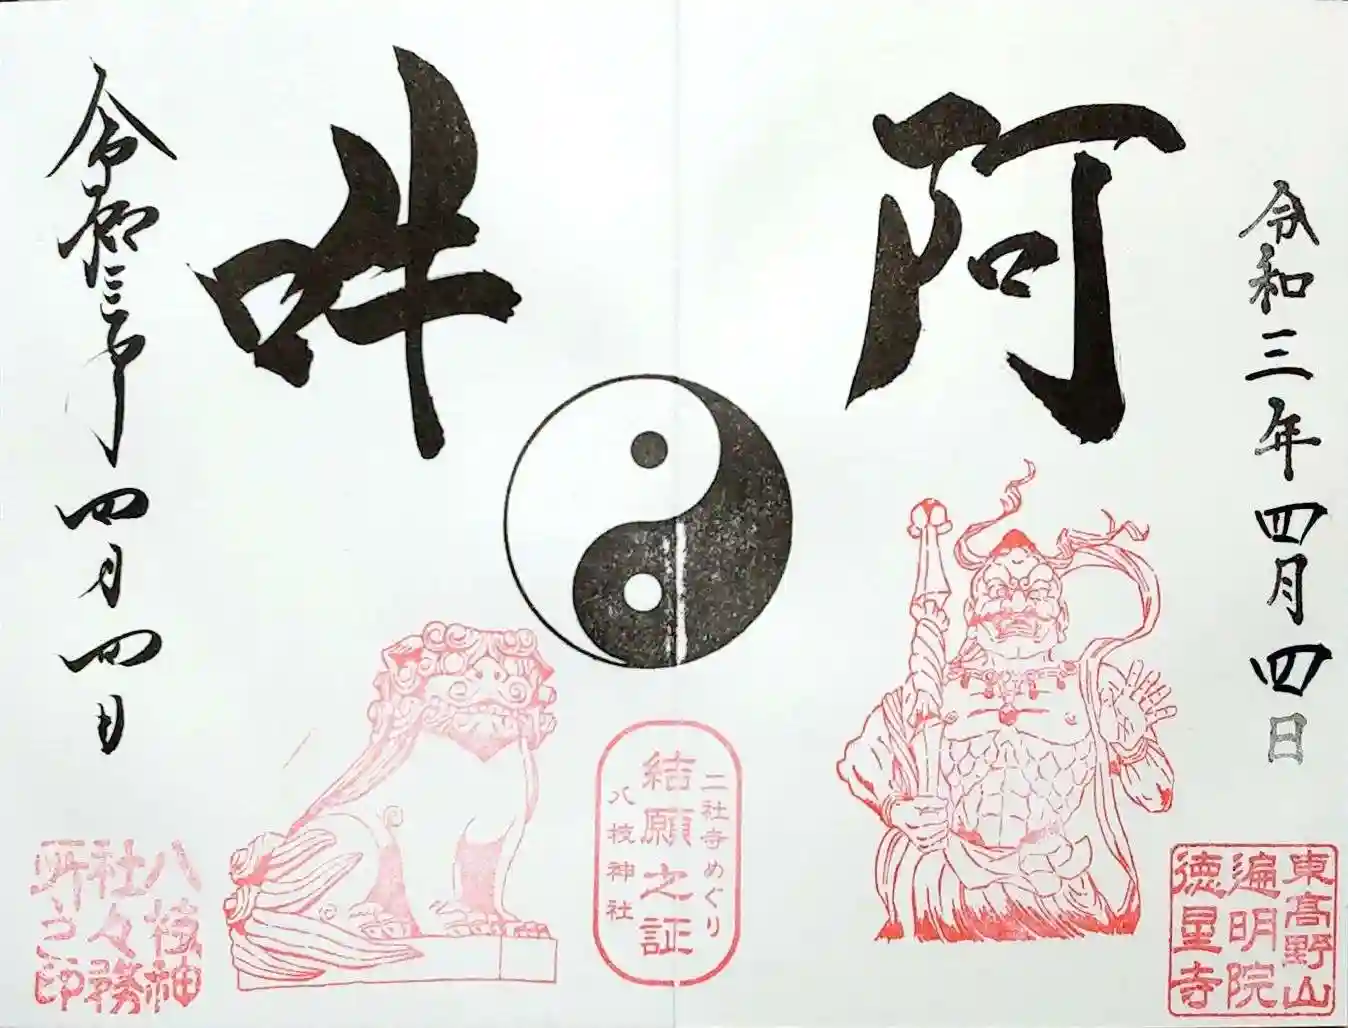 令和三年四月四日
阿
東高野山
遍明院
徳星寺
二社寺めぐり
結願之証
八枝神社
吽
令和三年四月四日
八枝神
社々務
所之印